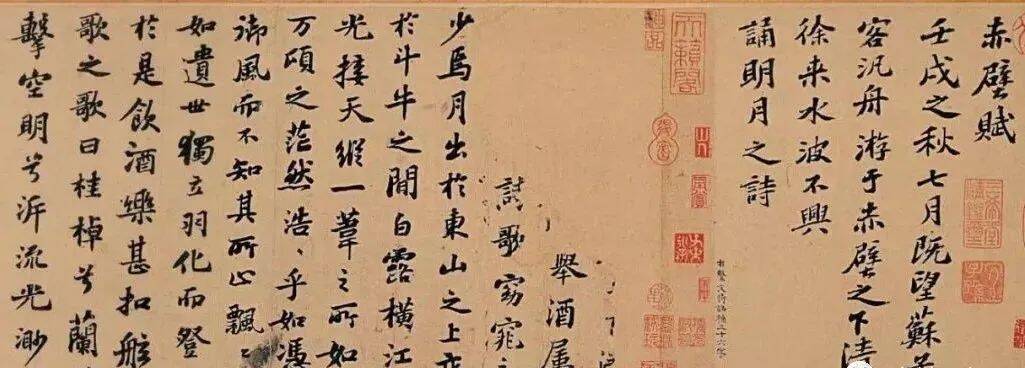 赤壁賦
壬戌之秋七月既望蘇子
客汎舟游于赤壁之下清
徐来水波不興
誦明月之詩
天籟閣
文待詔補三十六字
舉酒属
歌窈窕之
少焉月出於東山之上
於斗牛之間白露横江
光接天縱一葦之所如
万頃之茫然浩〻乎如馮
御風而不知其所止飄〻
如遺世獨立羽化而登
於是飲酒樂甚扣舷
歌之歌曰桂棹兮蘭
擊空明兮泝流光渺